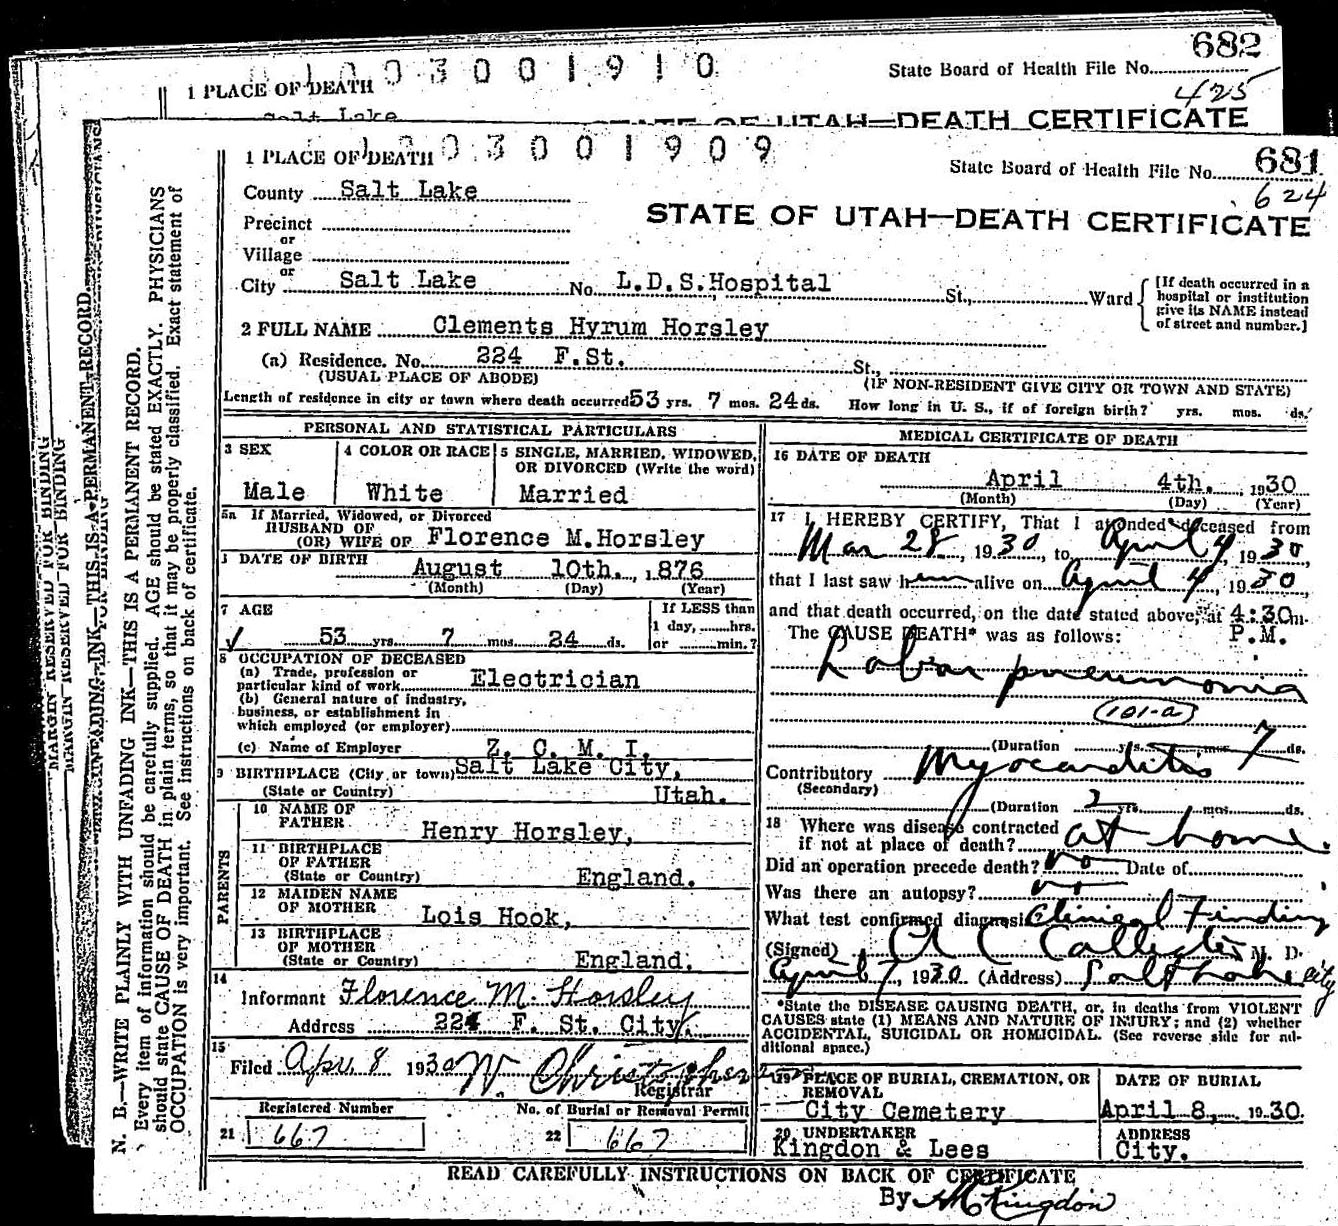 682
1 0 0 3 0 0 1 9 1 0
State Board of Health File No.
1 PLACE OF DEATH
425
Salt Lake
STATE OF UTAH—DEATH CERTIFICATE
0 3 0 0 1 9 0 9
1 PLACE OF DEATH
State Board of Health File No. 681
624
County Salt Lake
STATE OF UTAH—DEATH CERTIFICATE
Precinct
or
Village
or
City Salt Lake No. L.D.S.Hospital St., Ward
[If death occurred in a hospital or institution give its NAME instead of street and number.]
2 FULL NAME Clements Hyrum Horsley
(a) Residence. No. 224 F.St. St.,
(USUAL PLACE OF ABODE) (IF NON-RESIDENT GIVE CITY OR TOWN AND STATE)
Length of residence in city or town where death occurred 53 yrs. 7 mos. 24 ds. How long in U. S., if of foreign birth? yrs. mos. ds.
PERSONAL AND STATISTICAL PARTICULARS
3 SEX
Male
4 COLOR OR RACE
White
5 SINGLE, MARRIED, WIDOWED, OR DIVORCED (Write the word)
Married
5a If Married, Widowed, or Divorced
HUSBAND OF
(OR) WIFE OF Florence M.Horsley
DATE OF BIRTH
August 10th. , 1876
(Month) (Day) (Year)
7 AGE
53 yrs. 7 mos. 24 ds.
If LESS than
1 day, hrs.
or min.?
8 OCCUPATION OF DECEASED
(a) Trade, profession or
particular kind of work Electrician
(b) General nature of industry,
business, or establishment in
which employed (or employer)
(c) Name of Employer Z. C. M. I.
9 BIRTHPLACE (City or town) Salt Lake City,
(State or Country) Utah.
PARENTS
10 NAME OF
FATHER Henry Horsley,
11 BIRTHPLACE
OF FATHER
(State or Country) England.
12 MAIDEN NAME
OF MOTHER Lois Hook,
13 BIRTHPLACE
OF MOTHER
(State or Country) England.
14
Informant Florence M. Horsley
Address 224 F. St. City.
15
Filed Apr 8 1930 W. Christophersen
Registrar
Registered Number
21 667
No. of Burial or Removal Permit
22 667
MEDICAL CERTIFICATE OF DEATH
16 DATE OF DEATH
April 4th. , 1930
(Month) (Day) (Year)
17 I HEREBY CERTIFY, That I attended deceased from
Mar 28, 1930, to April 4, 1930,
that I last saw him alive on April 4, 1930,
and that death occurred, on the date stated above, at 4:30 m.
The CAUSE DEATH* was as follows: P.M.
Lobar pneumonia
101-a
(Duration yrs. mos. 7 ds.
Contributory Myocarditis
(Secondary)
(Duration 2 yrs. mos. ds.
18 Where was disease contracted
if not at place of death? at home.
Did an operation precede death? no Date of
Was there an autopsy? no
What test confirmed diagnosis Clinical Finding
(Signed) A C Callister M. D.
April 7, 1930 (Address) Salt Lake City
*State the DISEASE CAUSING DEATH, or, in deaths from VIOLENT
CAUSES state (1) MEANS AND NATURE OF INJURY; and (2) whether
ACCIDENTAL, SUICIDAL OR HOMICIDAL. (See reverse side for additional space.)
19 PLACE OF BURIAL, CREMATION, OR
REMOVAL
City Cemetery
DATE OF BURIAL
April 8, 1930.
20 UNDERTAKER
Kingdon & Lees
ADDRESS
City.
READ CAREFULLY INSTRUCTIONS ON BACK OF CERTIFICATE
By Kingdon
MARGIN RESERVED FOR BINDING
MARGIN RESERVED FOR BINDING
UNFADING INK—THIS IS A PERMANENT RECORD.
N. B.—WRITE PLAINLY WITH UNFADING INK—THIS IS A PERMANENT RECORD.
Every item of information should be carefully supplied. AGE should be stated EXACTLY. PHYSICIANS
should state CAUSE OF DEATH in plain terms, so that it may be properly classified. Exact statement of
OCCUPATION is very important. See instructions on back of certificate.